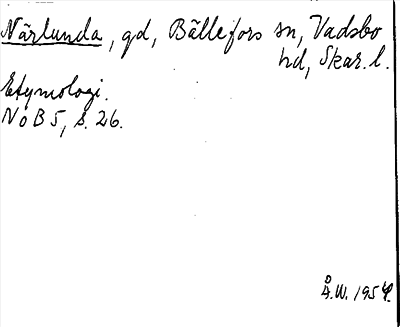 Närlunda, gd, Bällefors sn, Vadsbo
hd, Skar. l.
Etymologi.
NoB 5, s. 26.
Å.W. 1954.